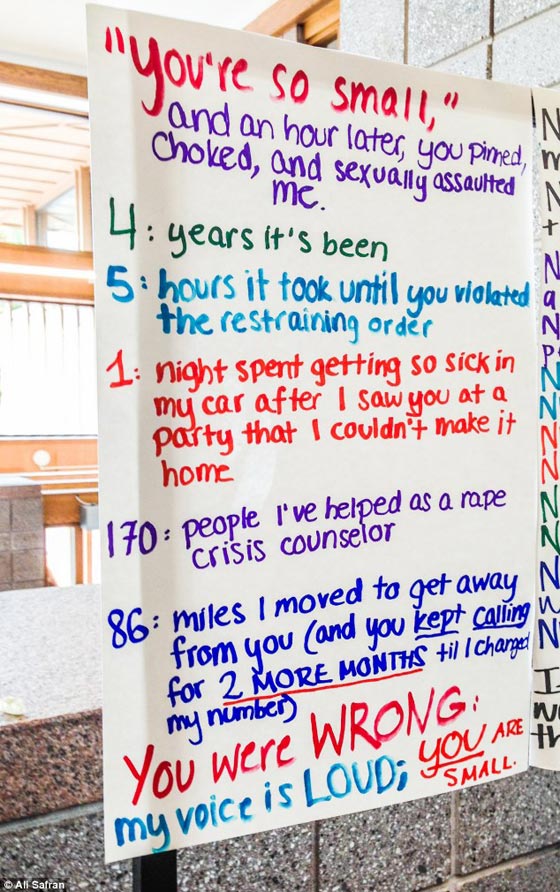 "You're so small,"
and an hour later, you pinned,
choked, and sexually assaulted
me.
4: years it's been
5: hours it took until you violated
the restraining order
1: night spent getting so sick in
my car after I saw you at a
party that I couldn't make it
home
170: people I've helped as a rape
crisis counselor
86: miles I moved to get away
from you (and you kept calling
for 2 MORE MONTHS til I changed
my number)
You were WRONG:
my voice is LOUD; YOU ARE
SMALL.
© Ali Safran